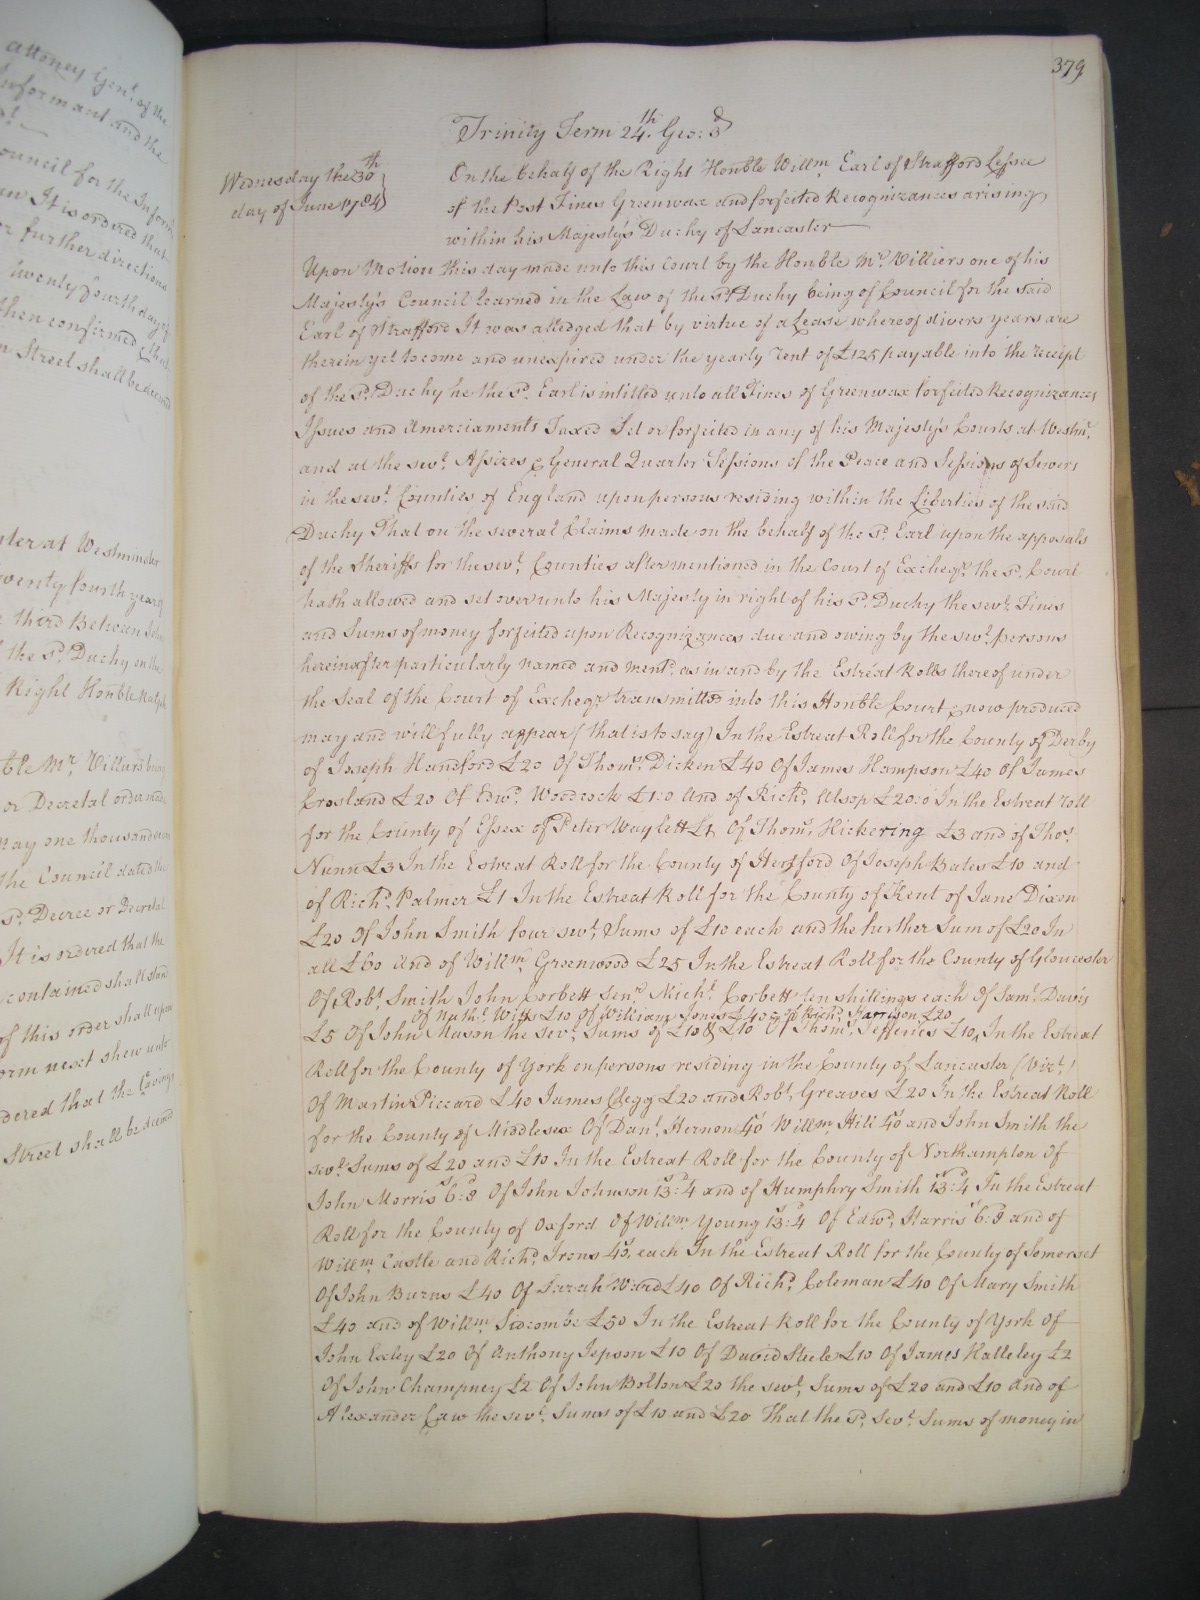 attorney Genl. of the
Informant and the
ouncil for the Inform
It is ordered that
or further directions
twenty fourth day of
then confirmed & that
n Street shall be decreed
ster at Westminster
wenty fourth year of
Third Between John
the sd. Duchy on the
Right Honble Ralph
ble Mr. Villiers
or Decretal order made
may one thousand seven
the Council dated the
sd. Decree or Decretal
It is ordered that the
contained shall stand
of this order shall upon
orm next shew unto
dered that the
Street shall be deemed
379
Trinity Term 24th. Geo: 3d
Wednesday the 30th
day of June 1784
On the behalf of the Right Honble Willm. Earl of Strafford Lessee
of the Post Fines Greenwax and forfeited Recognizances arising
within his Majesty's Duchy of Lancaster
Upon Motion this day made unto this Court by the Honble Mr. Villiers one of his
Majesty's Council learned in the Law of the sd. Duchy being of Council for the said
Earl of Strafford It was alledged that by virtue of a Lease whereof divers years are
therein yet to come and unexpired under the yearly rent of £125 payable into the receipt
of the sd. Duchy he the sd. Earl is intitled unto all Fines of Greenwax forfeited Recognizances
Issues and Amerciaments Taxed Set or forfeited in any of his Majesty's Courts at Westmr.
and at the sevl. Assizes & General Quarter Sessions of the Peace and Sessions of Sewers
in the sevl. Counties of England upon persons residing within the Liberties of the said
Duchy That on the several Claims made on the behalf of the sd. Earl upon the apposals
of the Sheriffs for the sevl. Counties after mentioned in the Court of Excheqr. the sd. Court
hath allowed and set over unto his Majesty in right of his sd. Duchy the sevl. Fines
and Sums of money forfeited upon Recognizances due and owing by the sevl. persons
hereinafter particularly named and mentd. as in and by the Estreat Rolls thereof under
the Seal of the Court of Excheqr. transmitted into this Honble Court & now produced
may and will fully appear (that is to say) In the Estreat Roll for the County of Derby
of Joseph Handford £20 Of Thoms. Dicken £40 Of James Hampson £40 Of James
Crosland £20 Of Edwd. Woodcock £1:0 And of Richd. Alsop £20:0 In the Estreat roll
for the County of Essex of Peter Waylett £1 Of Thoms. Kickering £3 and of Thos.
Nunn £3 In the Estreat Roll for the County of Hertford Of Joseph Bates £10 and
of Richd. Palmer £1 In the Estreat Roll for the County of Kent of Jane Dixon
£20 Of John Smith four sevl. Sums of £10 each and the further Sum of £20 In
all £60 And of Willm. Greenwood £25 In the Estreat Roll for the County of Gloucester
Of Robt. Smith John Corbett senr. Michl. Corbett ten shillings each Of Saml. Davis
of Nathl. Wilts £10 Of William Jones £40 & of Richd. Harrison £20
£5 Of John Mason the sevl. Sums of £10 & £10 Of Thoms. Jefferies £10 In the Estreat
Roll for the County of York on persons residing in the County of Lancaster (Vizt.)
Of Martin Piccard £40 James Clegg £20 and Robt. Greaves £20 In the Estreat Roll
for the County of Middlesex Of Danl. Hernon 40s Willm. Hill 40s and John Smith the
sevl. Sums of £20 and £10 In the Estreat Roll for the County of Northampton Of
John Morris 6s:8d Of John Johnson 13s:4d and of Humphry Smith 13s:4d In the Estreat
Roll for the County of Oxford Of Willm. Young 13s:4d Of Edwd. Harris 6s:8d and of
Willm. Castle and Richd. Irons 40s. each In the Estreat Roll for the County of Somerset
Of John Burns £40 Of Sarah Ward £40 Of Richd. Coleman £40 Of Mary Smith
£40 and of Willm. Sidcombe £50 In the Estreat Roll for the County of York Of
John Exley £20 Of Anthony Jepson £10 Of David Steele £10 Of James Halleley £2
Of John Champney £2 Of John Bolton £20 the sevl. Sums of £20 and £10 And of
Alexander Caw the sevl. Sums of £10 and £20 That the sd. Sevl. Sums of money in